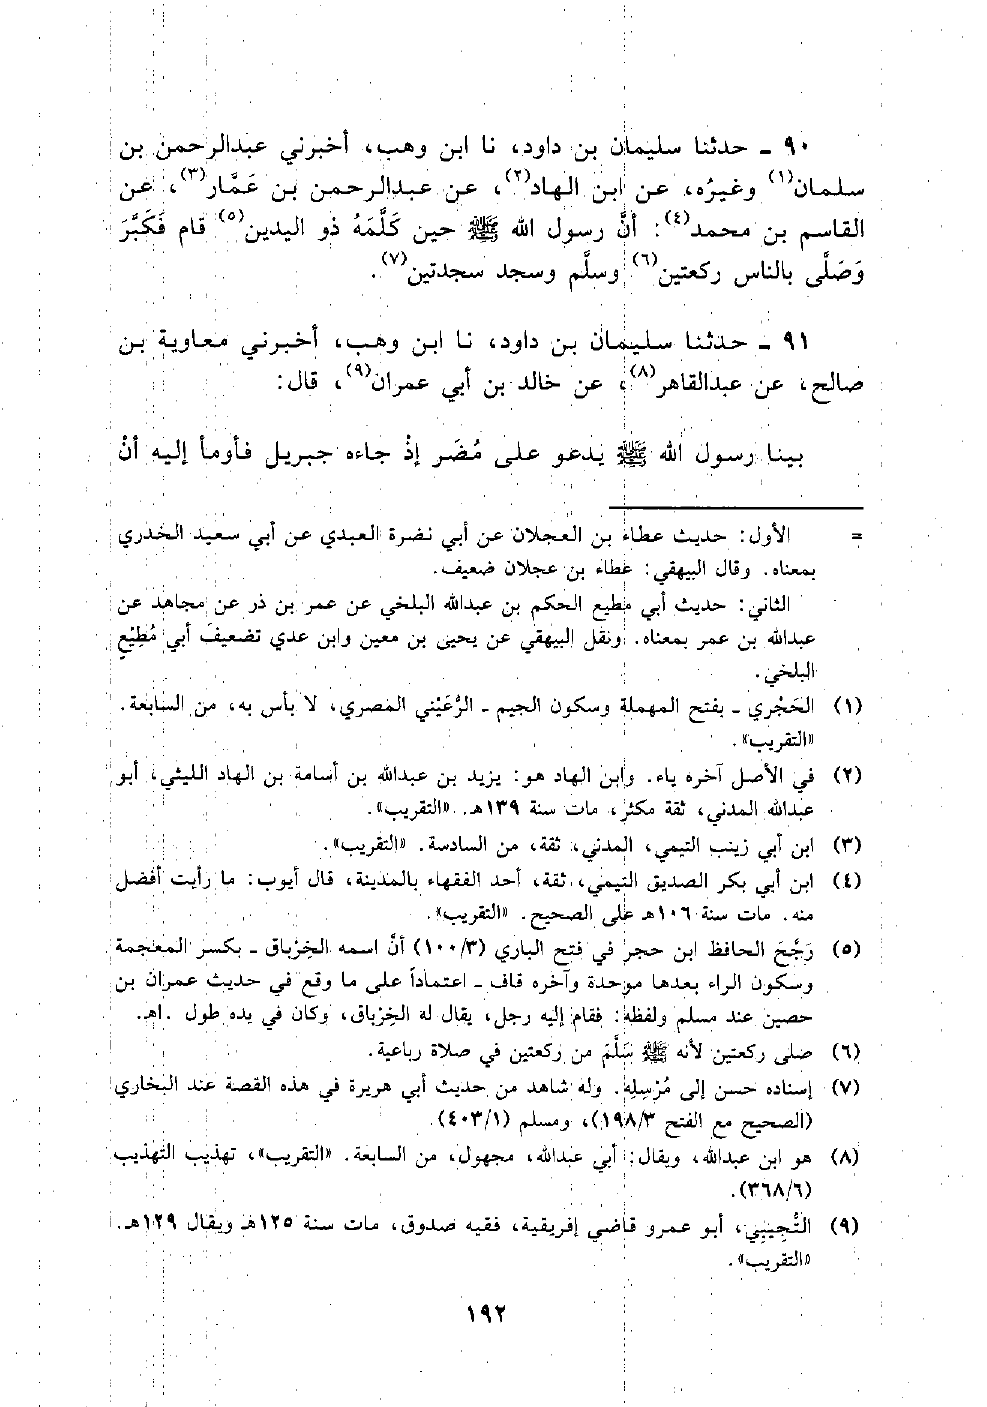 ٩٠ ـ حدثنا سليمان بن داود، نا ابن وهب، أخبرني عبدالرحمن بن
سلمان(١) وغيرُه، عن ابن الهاد(٢)، عن عبدالرحمن بن عَمَّار(٣)، عن
القاسم بن محمد(٤): أنَّ رسول الله ﷺ حين كَلَّمَهُ ذو اليدين(٥) قام فَكَبَّرَ
وَصَلَّى بالناس ركعتين(٦) وسلَّم وسجد سجدتين(٧).
٩١ ـ حدثنا سليمان بن داود، نا ابن وهب، أخبرني معاوية بن
صالح، عن عبدالقاهر(٨)، عن خالد بن أبي عمران(٩)، قال:
بينا رسول الله ﷺ يدعو على مُضَر إذْ جاءه جبريل فأومأ إليه أنْ
= الأول: حديث عطاء بن العجلان عن أبي نضرة العبدي عن أبي سعيد الخدري
بمعناه. وقال البيهقي: عطاء بن عجلان ضعيف.
الثاني: حديث أبي مطيع الحكم بن عبدالله البلخي عن عمر بن ذر عن مجاهد عن
عبدالله بن عمر بمعناه. ونقل البيهقي عن يحيى بن معين وابن عدي تضعيفَ أبي مُطِيْعٍ
البلخي.
(١) الحَجْري ـ بفتح المهملة وسكون الجيم ـ الرُّعَيْني المصري، لا بأس به، من السابعة.
«التقريب».
(٢) في الأصل آخره ياء. وابن الهاد هو: يزيد بن عبدالله بن أسامة بن الهاد الليثي، أبو
عبدالله المدني، ثقة مكثر، مات سنة ١٣٩هـ. «التقريب».
(٣) ابن أبي زينب التيمي، المدني، ثقة، من السادسة. «التقريب».
(٤) ابن أبي بكر الصديق التيمي، ثقة، أحد الفقهاء بالمدينة، قال أيوب: ما رأيت أفضل
منه. مات سنة ١٠٦هـ على الصحيح. «التقريب».
(٥) رَجَّحَ الحافظ ابن حجر في فتح الباري (١٠٠/٣) أنَّ اسمه الخِرْباق ـ بكسر المعجمة
وسكون الراء بعدها موحدة وآخره قاف ـ اعتماداً على ما وقع في حديث عمران بن
حصين عند مسلم ولفظه: فقام إليه رجل، يقال له الخِرْباق، وكان في يده طول .اهـ.
(٦) صلى ركعتين لأنه ﷺ سَلَّمَ من ركعتين في صلاة رباعية.
(٧) إسناده حسن إلى مُرْسِلِه. وله شاهد من حديث أبي هريرة في هذه القصة عند البخاري
(الصحيح مع الفتح ١٩٨/٣)، ومسلم (٤٠٣/١).
(٨) هو ابن عبدالله، ويقال: أبي عبدالله، مجهول، من السابعة. «التقريب»، تهذيب التهذيب
(٣٦٨/٦).
(٩) التُّجِيبِي، أبو عمرو قاضي إفريقية، فقيه صدوق، مات سنة ١٢٥هـ ويقال ١٢٩هـ.
«التقريب».
١٩٢